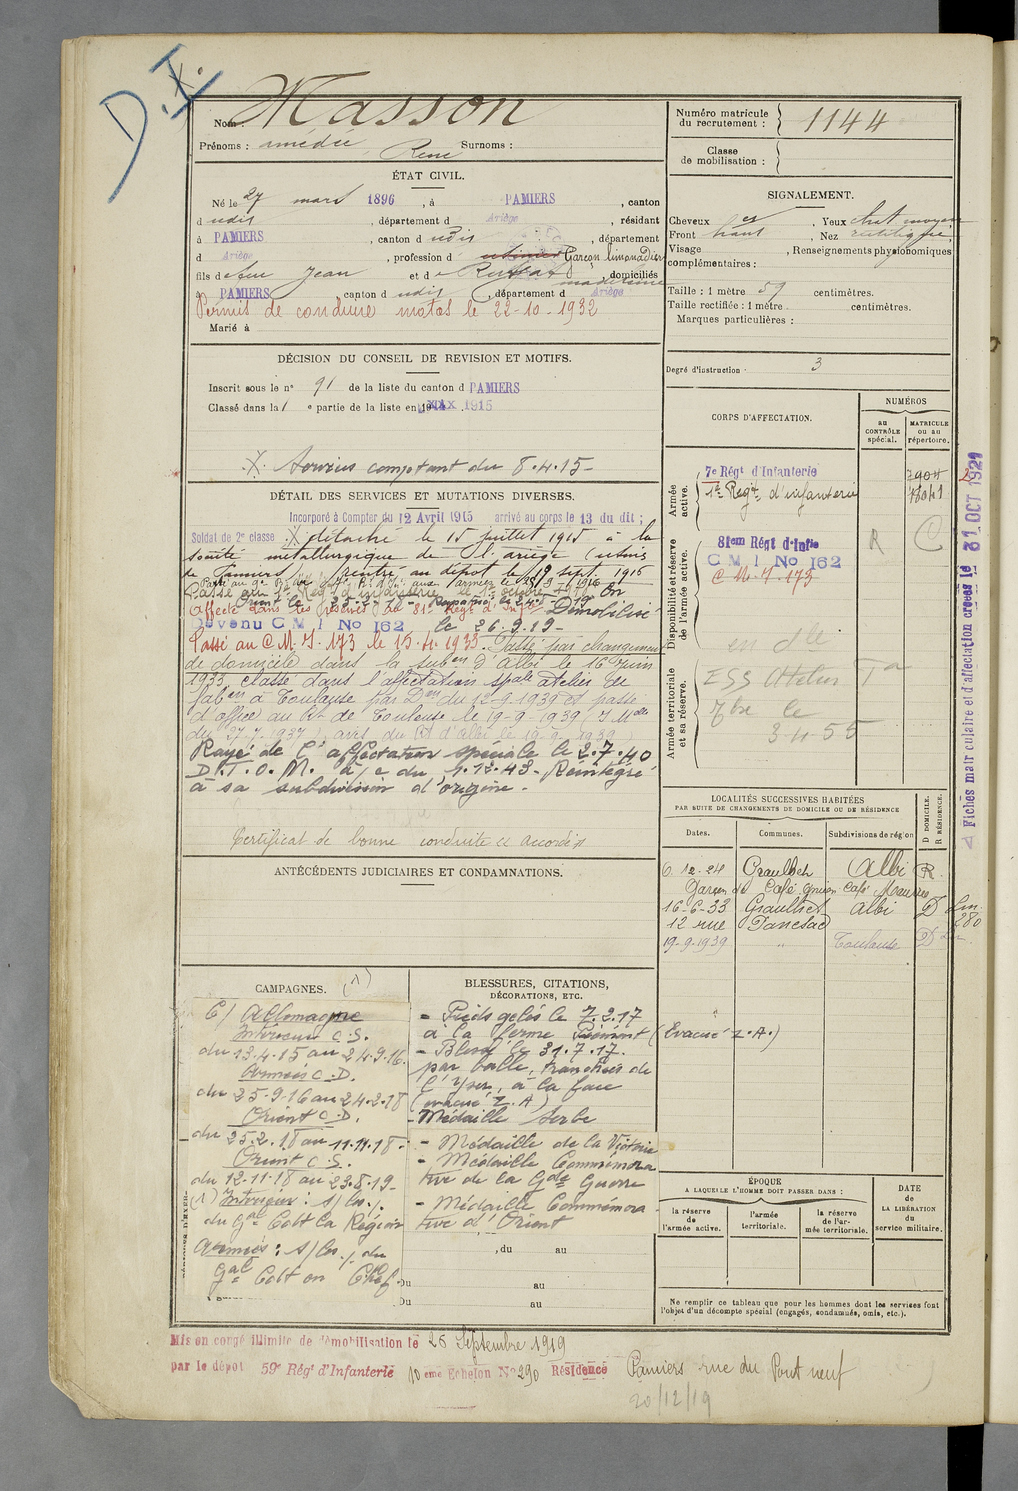 D.I.
Nom : Masson
Prénoms : Amédée René Surnoms :
Numéro matricule du recrutement : 1144
Classe de mobilisation :
ÉTAT CIVIL.
Né le 27 mars 1896, à PAMIERS, canton
d udis, département d Ariège, résidant
à PAMIERS, canton d udis, département
d Ariège, profession d Garçon limonadier
fils de feu Jean et de domiciliés
à PAMIERS, canton d udis, département d Ariège
Permis de conduire motos le 22-10-1932
Marié à
SIGNALEMENT.
Cheveux Yeux chat moyen
Front haut, Nez rectiligne
Visage , Renseignements physionomiques
complémentaires :
Taille : 1 mètre 59 centimètres.
Taille rectifiée : 1 mètre centimètres.
Marques particulières :
Degré d'instruction : 3
DÉCISION DU CONSEIL DE REVISION ET MOTIFS.
Inscrit sous le n° 91 de la liste du canton d PAMIERS
Classé dans la 1e partie de la liste en 1915
X. Services comptant du 8.4.15-
DÉTAIL DES SERVICES ET MUTATIONS DIVERSES.
Incorporé à Compter du 12 Avril 1915 arrivé au corps le 13 du dit ;
Soldat de 2e classe : X détaché le 15 juillet 1915 à la
société métallurgique de l'ariège (usines
de Pamiers) rentré au dépôt le 19 sept. 1915
Passé au 1er Reg. d'infanterie le 1er octobre 1916
Affecté dans les réserves du 81e Régt d'Infie Démobilisé
Devenu C M I No 162 le 26.9.19-
Passé au C.M.I. 173 le 15.4.1933. Passé par changement
de domicile dans la subon d'Albi le 16 Juin
1933, classé dans l'affectation spale atelier de
fabon à Toulouse par Don du 12-9-1939 et passé
d'office au Bt de Toulouse le 19-9-1939 (I Mlle
du 27.7.1937) avis du Bt d'Albi le 19-9-1939)
Rayé de l'affectation spéciale le 2.7.40
D.T.O.M. à/c du 1.12.43- Réintégré
à sa subdivision d'origine.
Certificat de bonne conduite accordé
CORPS D'AFFECTATION.
NUMÉROS
au CONTRÔLE spécial.
MATRICULE ou au répertoire.
Armée active.
7e Régt d'Infanterie 7904
1er Regt. d'infanterie
Disponibilité et réserve de l'armée active.
81em Régt d'Infie R C
C M I No 162
C.M.I. 173
Armée territoriale et sa réserve.
en dle
ESS Atelier
le
3-11-55
Fiches matriculaire et d'affectation créées le 31 OCT 1921
LOCALITÉS SUCCESSIVES HABITÉES
PAR SUITE DE CHANGEMENTS DE DOMICILE OU DE RÉSIDENCE
Dates. Communes. Subdivisions de région
D DOMICILE. R RÉSIDENCE.
6.12-24 Graulhet Albi R
Garçon de Café, Café
16-6-33 Graulhet Albi D
12 rue
280
19-9-1939 " Toulouse D
ANTÉCÉDENTS JUDICIAIRES ET CONDAMNATIONS.
CAMPAGNES. (1)
C/ Allemagne
Intérieur C.S.
du 13.4.15 au 24.9.16.
Armées C.D.
du 25.9.16 au 24.2.18
Orient C.D.
du 25.2.18 au 11.11.18.
Orient C.S.
du 12.11.18 au 23.8.19-
(1) Intérieur :
du Gal Cdt la Région
Armées : du
Gal Cdt en Chef
BLESSURES, CITATIONS,
DÉCORATIONS, ETC.
- Pieds gelés le 7.2.17
à la ferme (Evacué Z.A.)
- Blessé le 31.7.17.
par balle, tranchées de
l'Yser, à la face
(évacué Z.A)
- Médaille Serbe
- Médaille de la Victoire
- Médaille Commémora
tive de la Gde Guerre
- Médaille Commémora
tive d'Orient
, du au
Du au
Du au
ÉPOQUE
À LAQUELLE L'HOMME DOIT PASSER DANS :
la réserve de l'armée active.
l'armée territoriale.
la réserve de l'armée territoriale.
DATE de LA LIBÉRATION du service militaire.
Ne remplir ce tableau que pour les hommes dont les services font
l'objet d'un décompte spécial (engagés, condamnés, omis, etc.).
Mis en congé illimité de démobilisation le 26 Septembre 1919
par le dépôt 59e Régt d'Infanterie 10eme Echelon No 290 Résidence Pamiers rue du Pont neuf
20/12/19